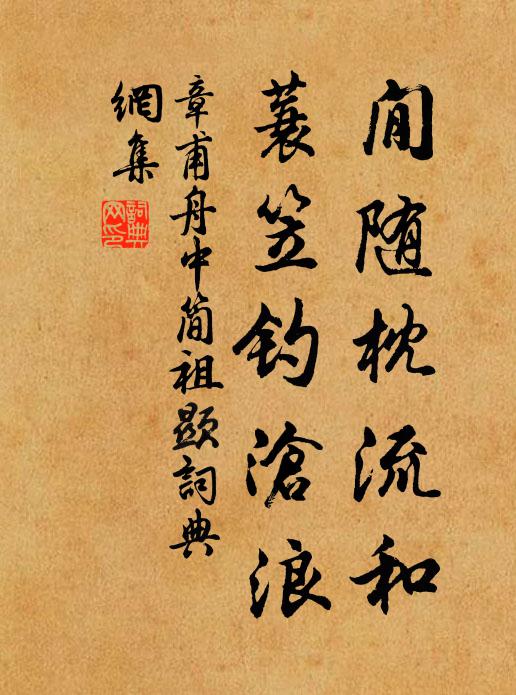 閒随枕流和
蓑笠钓滄浪
章甫舟中簡祖顯詞典
網集
詞典
网印